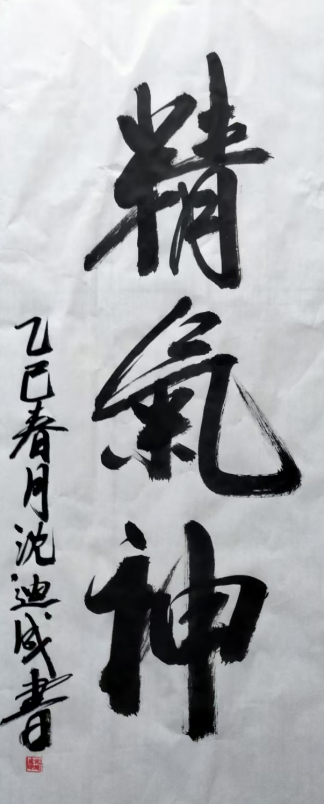 精氣神
乙巳春月沈迪成書